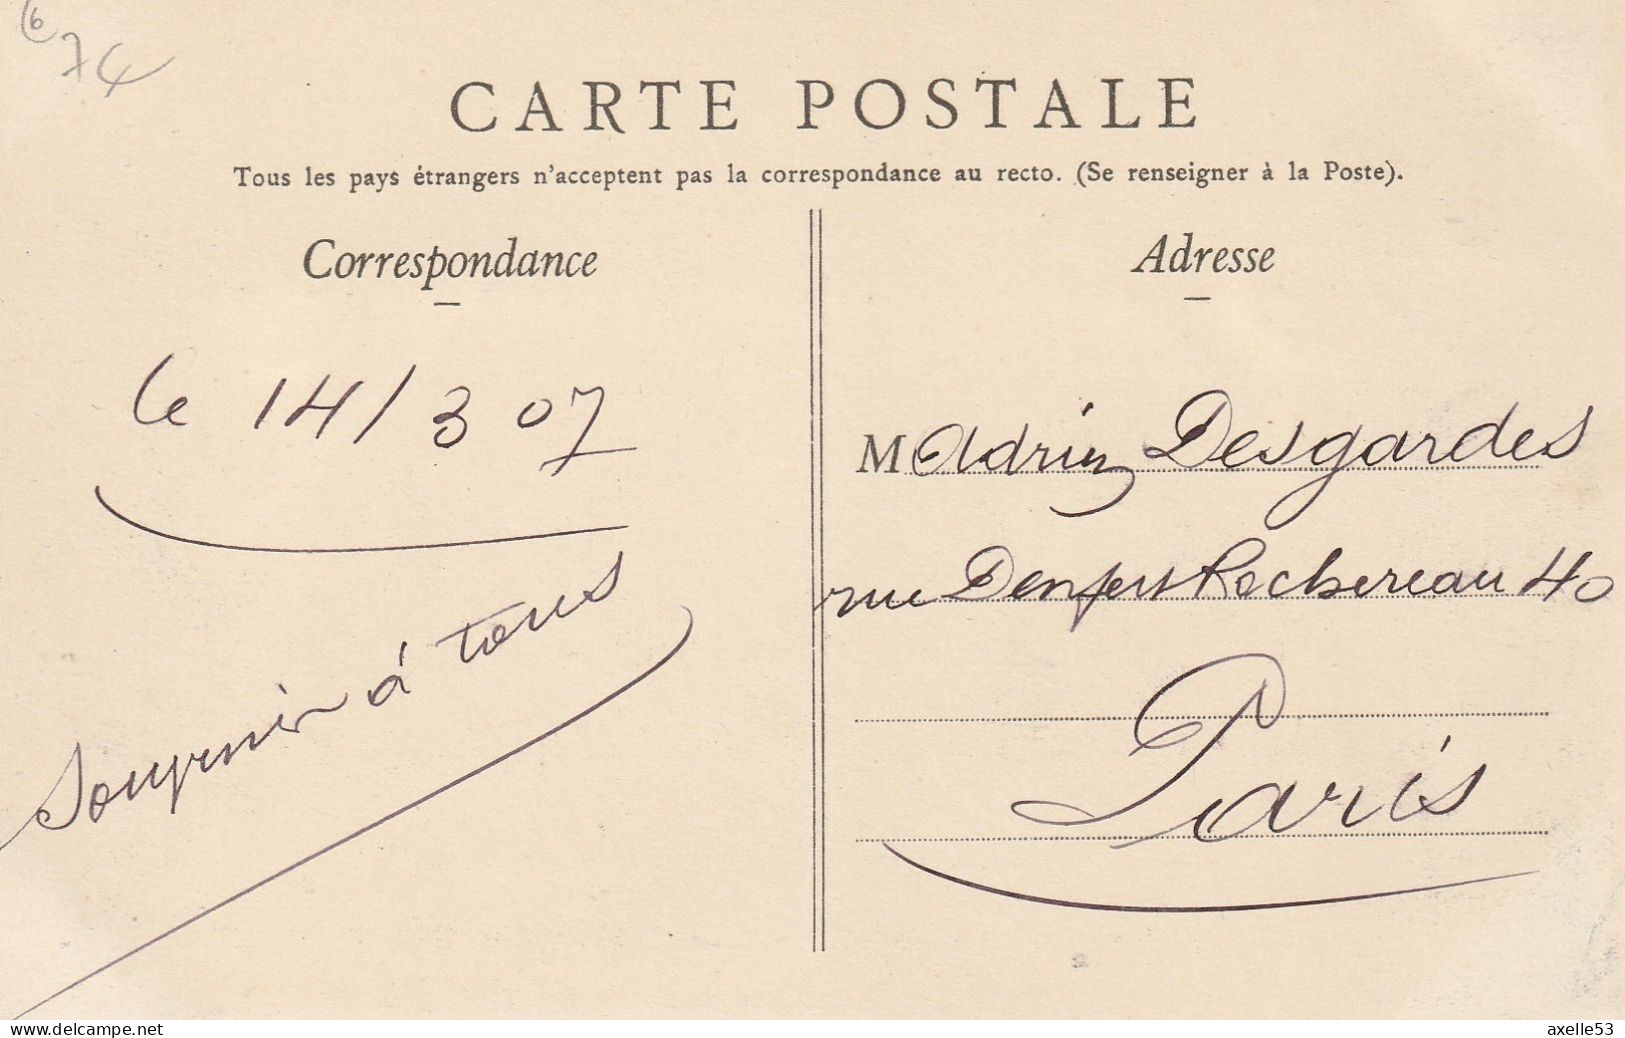 674
CARTE POSTALE
Tous les pays étrangers n'acceptent pas la correspondance au recto. (Se renseigner à la Poste).
Correspondance
Le 14/3 07
Souvenir à tous
Adresse
M Adrien Desgardes
rue Denfert Rochereau 40
Paris
www.delcampe.net
axelle53